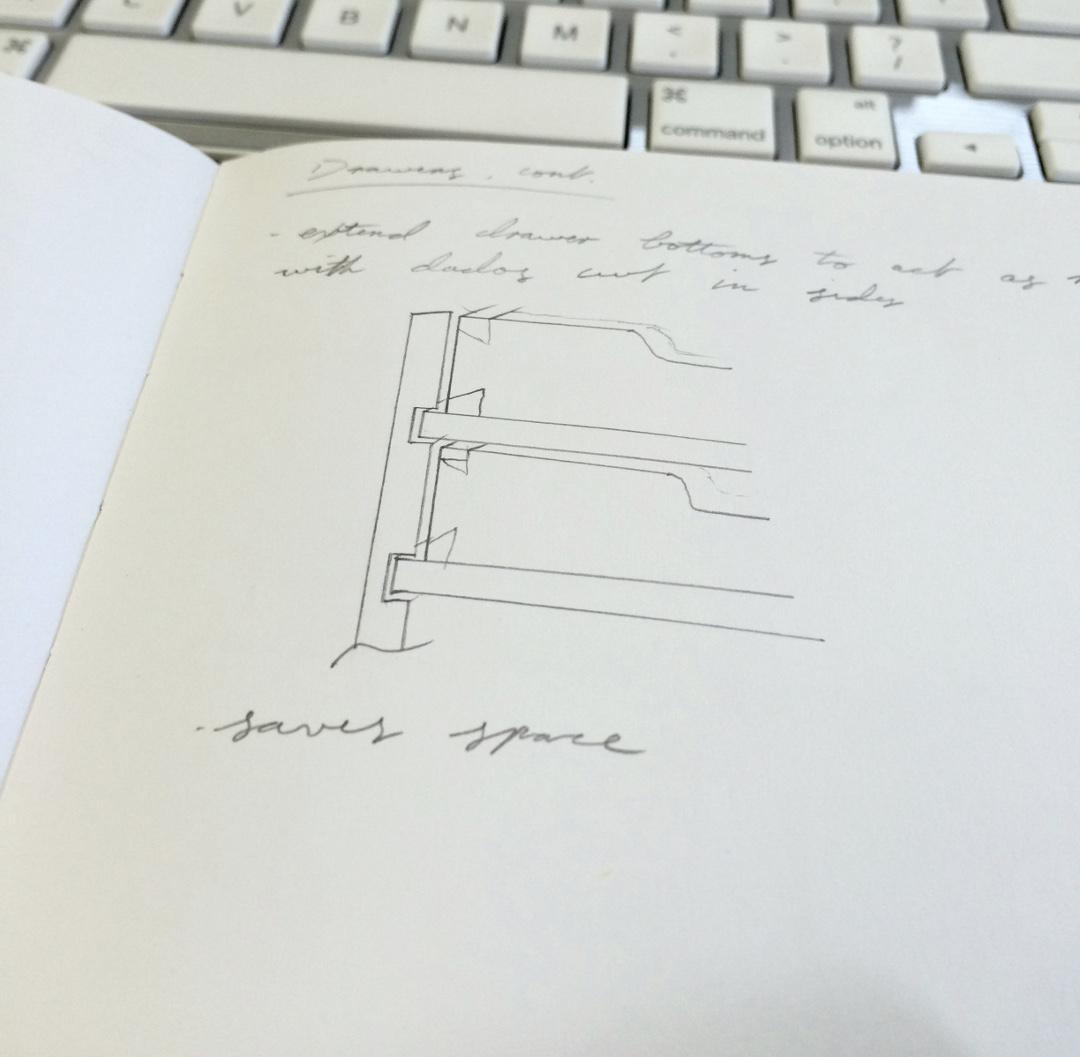 V B N M < >
. . ? /
⌘ ⌘ alt
command option
Drawers, cont.
- extend drawer bottoms to act as
with dados cut in sides
- saves space